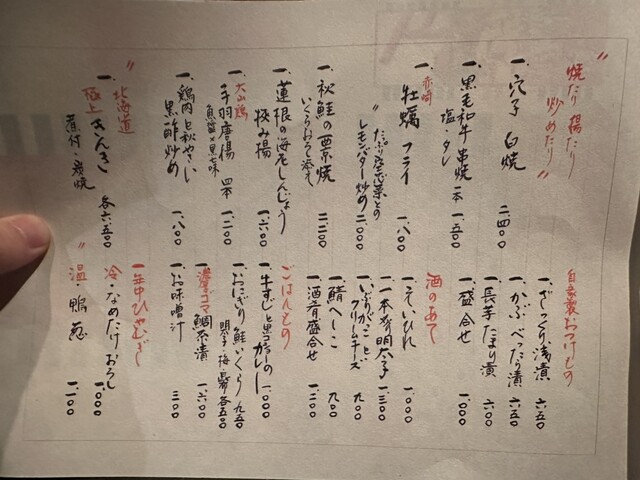 焼たり 揚たり
炒めたり
一、穴子 白焼 二.四〇〇
一、黒毛和牛 串焼 一本 一.五〇〇
塩・タレ
赤崎
一、牡蠣 フライ 一.八〇〇
〃 たっぷり産芯菜との
レモンバター炒め 二.〇〇〇
一、秋鮭の西京焼 二.二〇〇
いくらおろし添え
一、蓮根の海老しんじょう
挟み揚 一.六〇〇
大山鶏
一、手羽唐揚 四本 一.二〇〇
魚醤×黒七味
一、鶏肉と秋やさい
黒酢炒め 一.八〇〇
北海道
極上
一、きんき 各六.五〇〇
煮付・炭焼
自家製おつけもの
一、ざっくり浅漬 六五〇
一、かぶ べったら漬 六五〇
一、長芋たまり漬 六〇〇
一、盛合せ 一.〇〇〇
酒のあて
一、えいひれ 一.〇〇〇
一、一本釣明太子 一.三〇〇
一、いぶりがことクリームチーズ 九〇〇
一、鯖へしこ 九〇〇
一、酒肴盛合せ 一.二〇〇
ごはんもの
一、牛すじと黒コショーのカレー 一.〇〇〇
一、おにぎり 鮭いくら 九五〇
明太子 梅 各五〇〇
一、濃厚ゴマ 鯛茶漬 一.六〇〇
一、お味噌汁 三〇〇
一年中ひやむぎ
冷・なめたけおろし 一.〇〇〇
〃 温・鴨葱 一.二〇〇